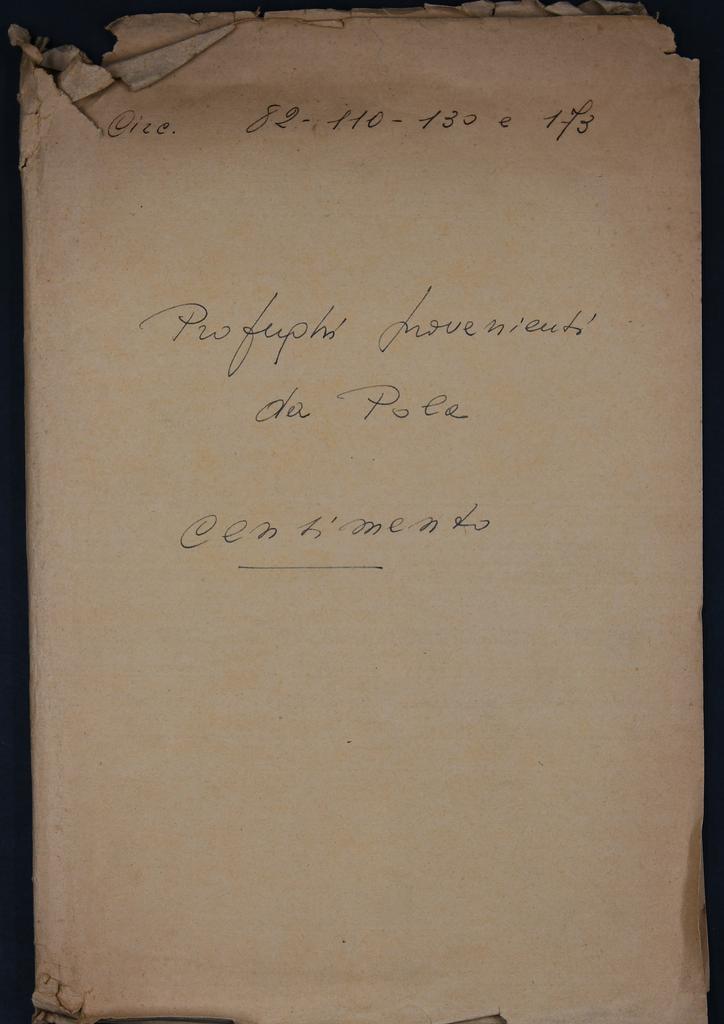 Circ. 82-110-130 e 173
Profughi provenienti
da Pola
Censimento